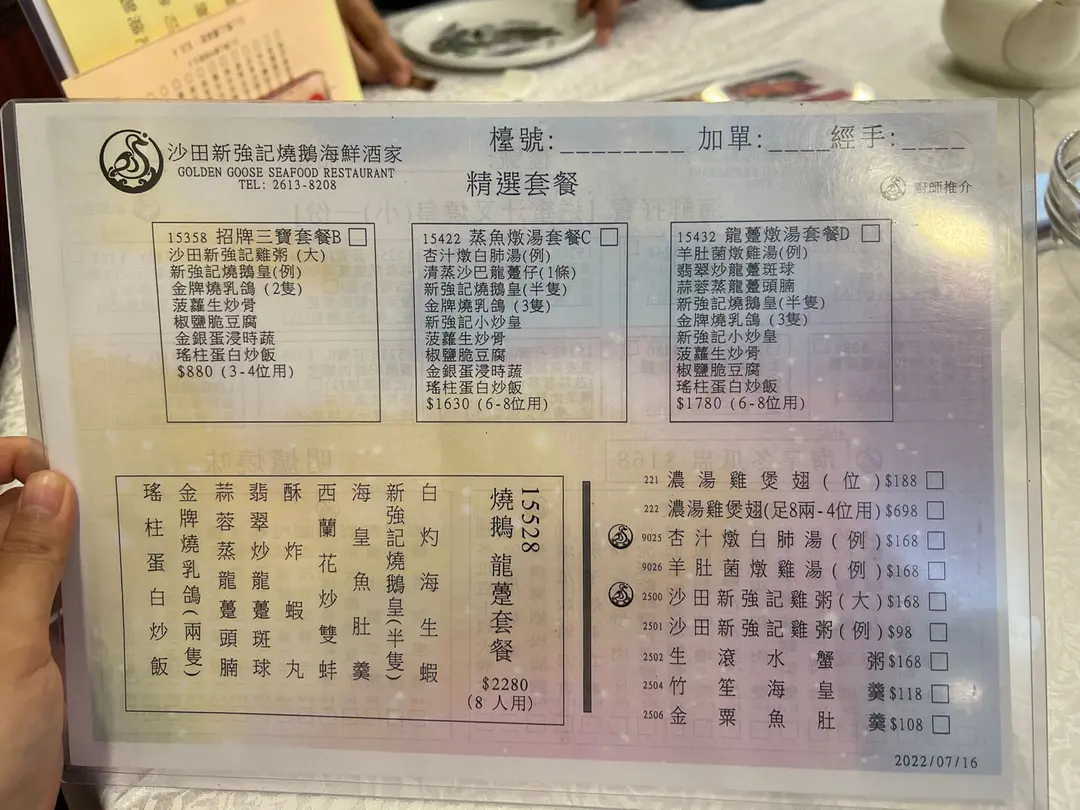 沙田新強記燒鵝海鮮酒家
GOLDEN GOOSE SEAFOOD RESTAURANT
TEL: 2613-8208
檯號:________ 加單:____經手:____
精選套餐
廚師推介
15358 招牌三寶套餐B
沙田新強記雞粥 (大)
新強記燒鵝皇(例)
金牌燒乳鴿 (2隻)
菠蘿生炒骨
椒鹽脆豆腐
金銀蛋浸時蔬
瑤柱蛋白炒飯
$880 (3-4位用)
15422 蒸魚燉湯套餐C
杏汁燉白肺湯(例)
清蒸沙巴龍躉仔(1條)
新強記燒鵝皇(半隻)
金牌燒乳鴿 (3隻)
新強記小炒皇
菠蘿生炒骨
椒鹽脆豆腐
金銀蛋浸時蔬
瑤柱蛋白炒飯
$1630 (6-8位用)
15432 龍躉燉湯套餐D
羊肚菌燉雞湯(例)
翡翠炒龍躉斑球
蒜蓉蒸龍躉頭腩
新強記燒鵝皇(半隻)
金牌燒乳鴿 (3隻)
新強記小炒皇
菠蘿生炒骨
椒鹽脆豆腐
瑤柱蛋白炒飯
$1780 (6-8位用)
15528
燒鵝 龍躉套餐
$2280
(8 人用)
白灼海生蝦
新強記燒鵝皇(半隻)
海皇魚肚羹
西蘭花炒雙蚌
酥炸蝦丸
翡翠炒龍躉斑球
蒜蓉蒸龍躉頭腩
金牌燒乳鴿(兩隻)
瑤柱蛋白炒飯
221 濃湯雞煲翅(位)$188
222 濃湯雞煲翅(足8兩-4位用)$698
9025 杏汁燉白肺湯(例)$168
9026 羊肚菌燉雞湯(例)$168
2500 沙田新強記雞粥(大)$168
2501 沙田新強記雞粥(例)$98
2502 生滾水蟹粥$168
2504 竹笙海皇羹$118
2506 金粟魚肚羹$108
2022/07/16